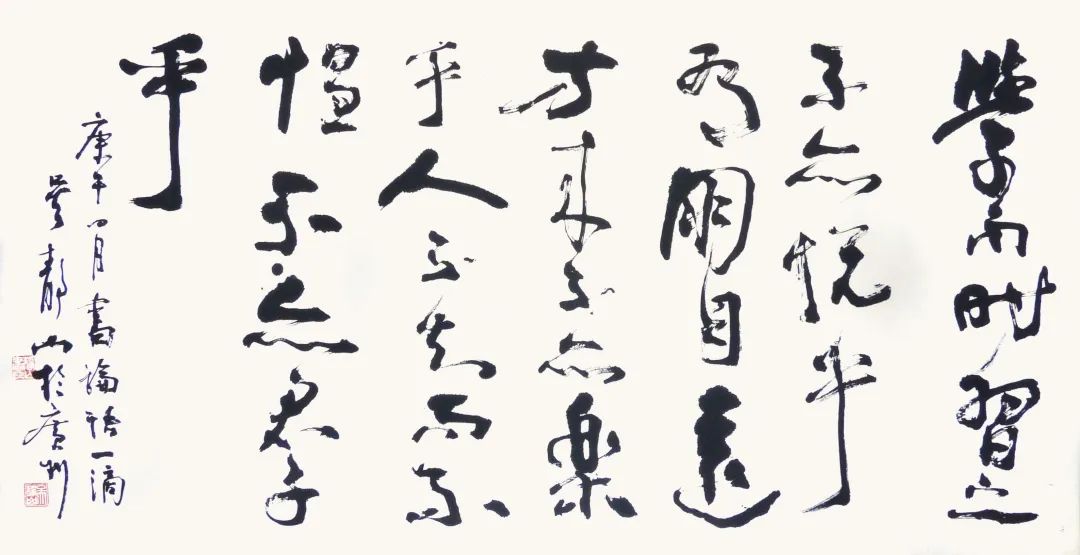 學而時習之
不亦悦乎
有朋自遠
方来不亦樂
乎人不知而不
愠不亦君子
乎
庚午四月書論語一滴
吳靜山於廣州